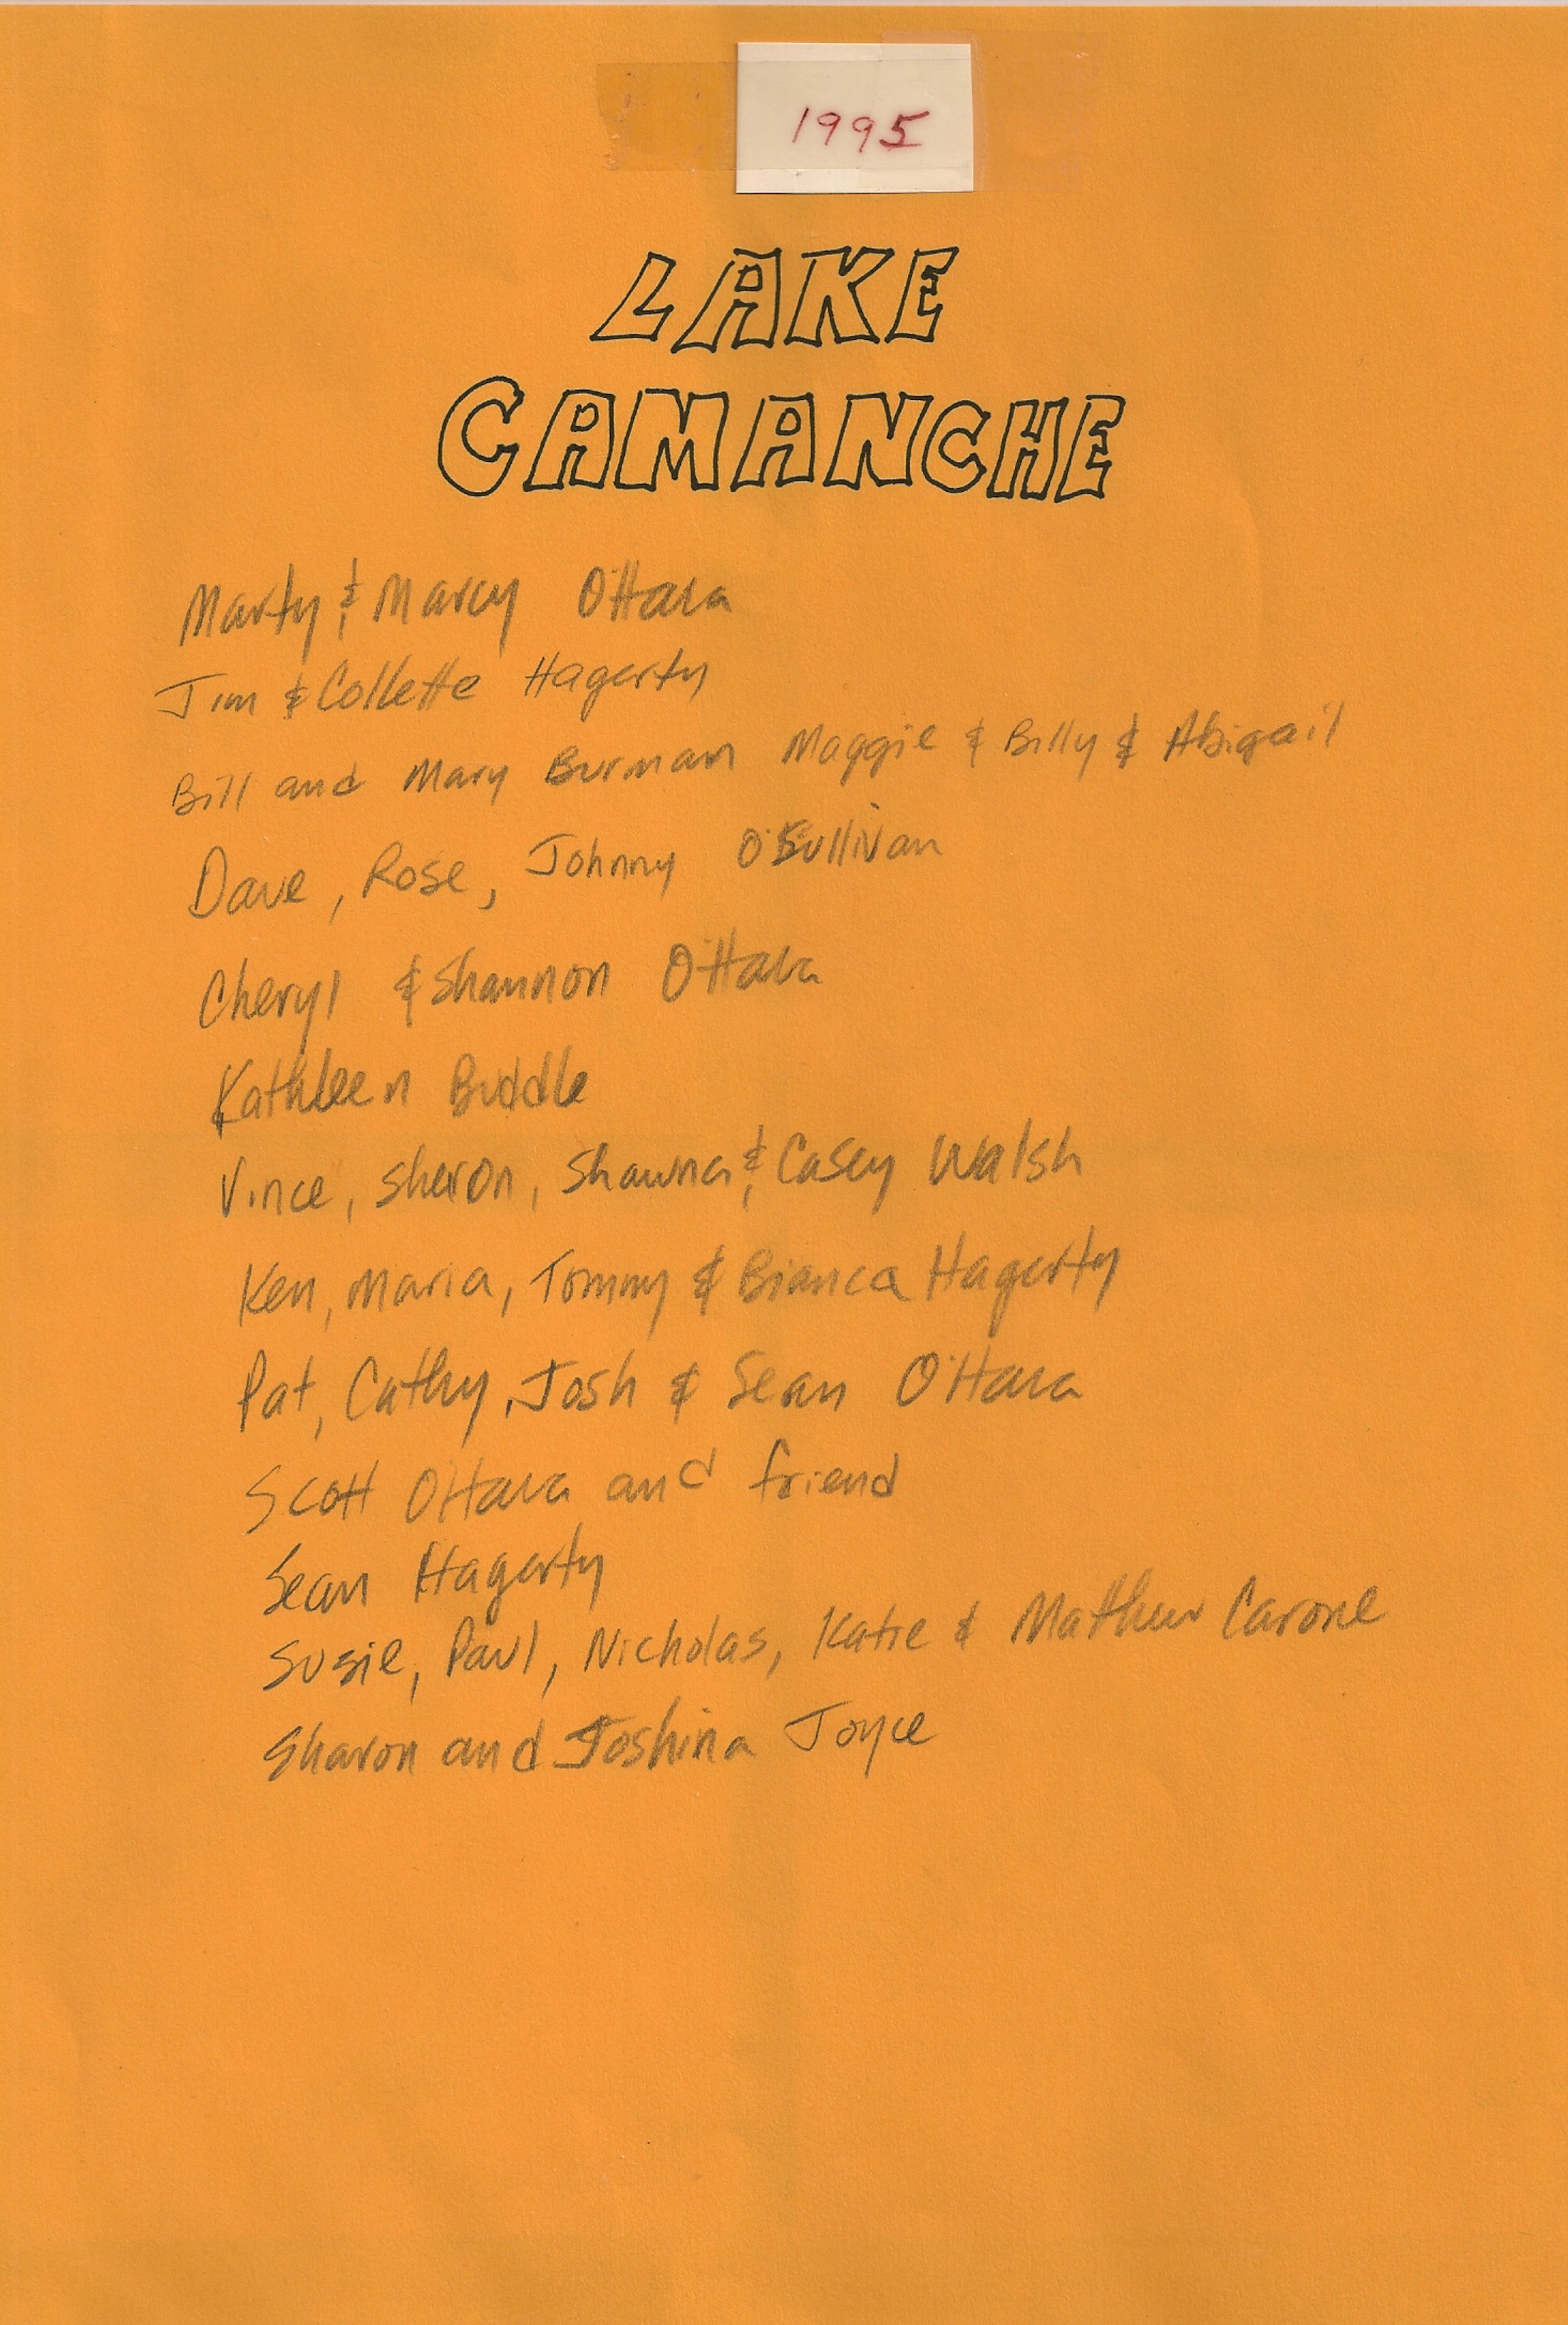 1995
LAKE
CAMANCHE
Marty & Marcy O'Hara
Jim & Collette Hagerty
Bill and Mary Burman Maggie & Billy & Abigail
Dave, Rose, Johnny O'Sullivan
Cheryl & Shannon O'Hara
Kathleen Buddle
Vince, Sharon, Shawna & Casey Walsh
Ken, Maria, Tommy & Bianca Hagerty
Pat, Cathy, Josh & Sean O'Hara
Scott O'Hara and friend
Sean Hagerty
Susie, Paul, Nicholas, Katie & Matthew Carone
Sharon and Joshina Joyce